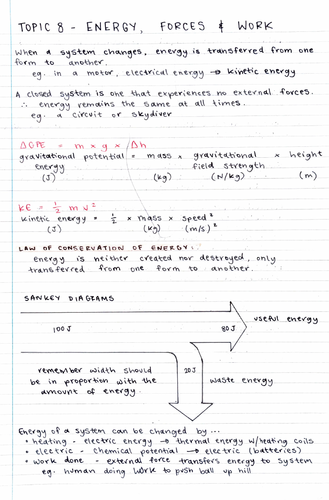 TOPIC 8 - ENERGY, FORCES & WORK
When a system changes, energy is transferred from one
form to another.
eg. in a motor, electrical energy → kinetic energy
A closed system is one that experiences no external forces.
∴ energy remains the same at all times.
eg. a circuit or skydiver
ΔGPE = m × g × Δh
gravitational potential = mass × gravitational × height
energy field strength
(J) (kg) (N/kg) (m)
KE = 1/2 m v²
kinetic energy = 1/2 × mass × speed²
(J) (kg) (m/s)²
LAW OF CONSERVATION OF ENERGY:
energy is neither created nor destroyed, only
transferred from one form to another.
SANKEY DIAGRAMS
useful energy
100J 80J
remember width should 20J
be in proportion with the waste energy
amount of energy
Energy of a system can be changed by...
• heating - electric energy → thermal energy w/heating coils
• electric - chemical potential → electric (batteries)
• work done - external force transfers energy to system
eg. human doing work to push ball up hill